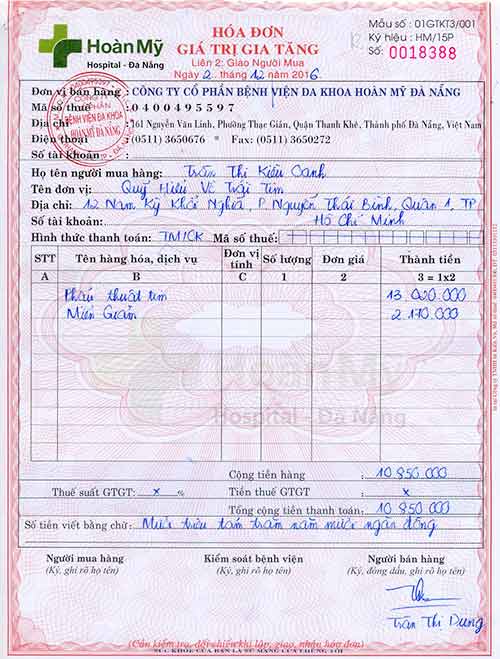 HÓA ĐƠN
GIÁ TRỊ GIA TĂNG
Liên 2: Giao Người Mua
Ngày 2 tháng 12 năm 2016
Mẫu số : 01GTKT3/001
Ký hiệu : HM/15P
Số: 0018388
Hoàn Mỹ
Hospital - Đà Nẵng
Đơn vị bán hàng : CÔNG TY CỔ PHẦN BỆNH VIỆN ĐA KHOA HOÀN MỸ ĐÀ NẴNG
Mã số thuế : 0400495597
Địa chỉ : 161 Nguyễn Văn Linh, Phường Thạc Gián, Quận Thanh Khê, Thành phố Đà Nẵng, Việt Nam
Điện thoại : (0511) 3650676 * Fax: (0511) 3650272
Số tài khoản :
BỆNH VIỆN ĐA KHOA
HOÀN MỸ ĐÀ NẴNG
Họ tên người mua hàng: Trần Thị Kiều Oanh
Tên đơn vị: Quỹ Hiểu Về Trái Tim
Địa chỉ: 12 Nam Kỳ Khởi Nghĩa, P. Nguyễn Thái Bình, Quận 1, TP
Số tài khoản: Hồ Chí Minh
Hình thức thanh toán: TM/CK Mã số thuế:
STT Tên hàng hóa, dịch vụ Đơn vị tính Số lượng Đơn giá Thành tiền
A B C 1 2 3 = 1x2
Phẫu thuật tim 13 020.000
Miễn Giảm 2 170.000
Hoàn Mỹ
Hospital - Đà Nẵng
Cộng tiền hàng : 10 850 000
Thuế suất GTGT: x % Tiền thuế GTGT : x
Tổng cộng tiền thanh toán: 10 850 000
Số tiền viết bằng chữ: Mười triệu tám trăm năm mươi ngàn đồng
Người mua hàng Kiểm soát bệnh viện Người bán hàng
(Ký, ghi rõ họ tên) (Ký, ghi rõ họ tên) (Ký, đóng dấu, ghi rõ họ tên)
Trần Thị Dung
(Cần kiểm tra, đối chiếu khi lập, giao, nhận hóa đơn)
SỨC KHỎE CỦA BẠN LÀ SỨ MẠNG CỦA CHÚNG TÔI